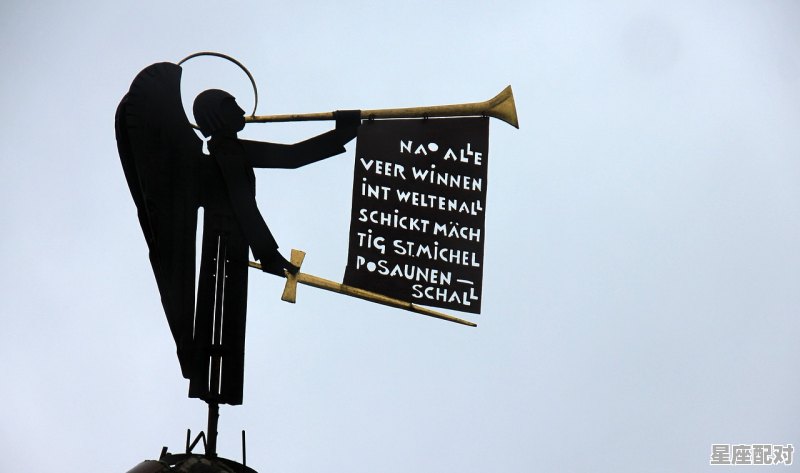 NAO ALLE
VEER WINNEN
INT WELTENALL
SCHICKT MÄCH
TIG ST.MICHEL
POSAUNEN—
SCHALL
W
星座配对